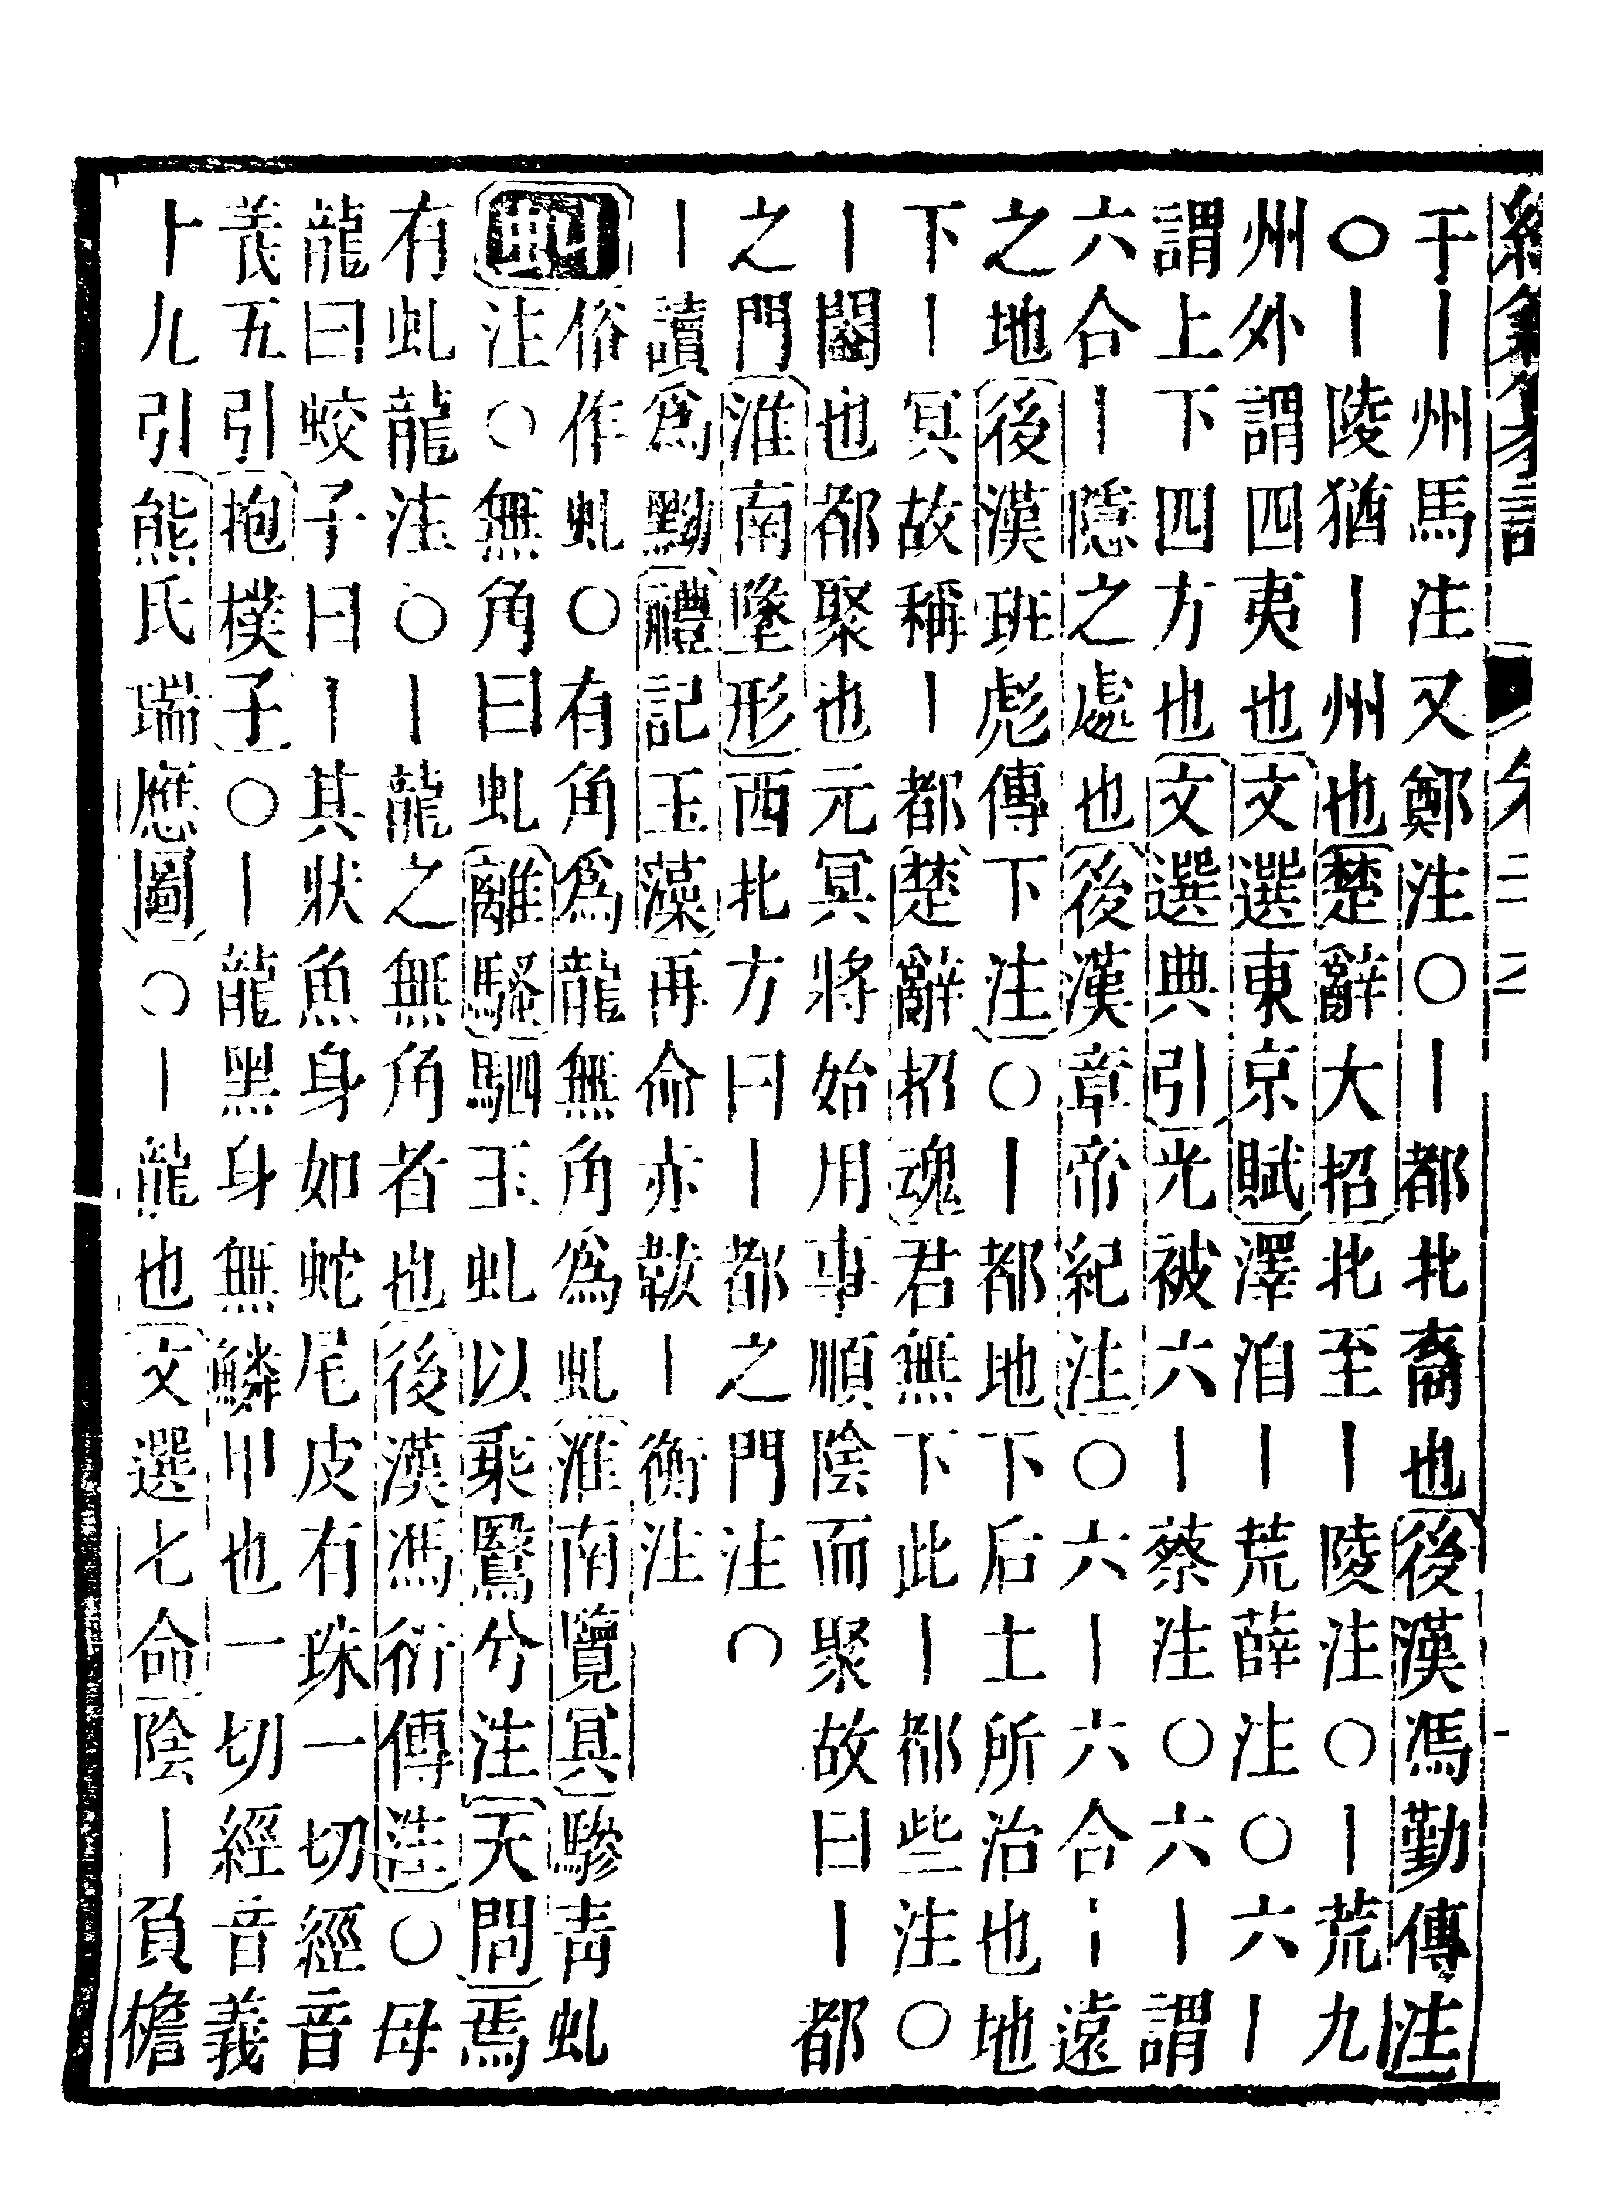 經籍籑詁
于｜州馬注又鄭注○｜都北裔也後漢馮勤傳注
○｜陵猶｜州也楚辭大招北至｜陵注○｜荒九
州外謂四夷也文選東京賦澤洎｜荒薛注○六｜
謂上下四方也文選典引光被六｜蔡注○六｜謂
六合｜隱之處也後漢章帝紀注○六｜六合｜遠
之地後漢班彪傳下注○｜都地下后土所治也地
下｜冥故稱｜都楚辭招魂君無下此｜都些注○
｜闇也都聚也元冥將始用事順陰而聚故曰｜都
之門淮南墬形西北方曰｜都之門注○
｜讀爲黝禮記玉藻再命赤韍｜衡注
虯俗作虬○有角爲龍無角爲虬淮南覽冥驂青虬
注○無角曰虬離騷駟玉虬以乘鷖兮注天問焉
有虬龍注○｜龍之無角者也後漢馮衍傳注○母
龍曰蛟子曰｜其狀魚身如蛇尾皮有珠一切經音
義五引抱樸子○｜龍黑身無鱗甲也一切經音義
十九引熊氏瑞應圖○｜龍也文選七命陰｜負檐